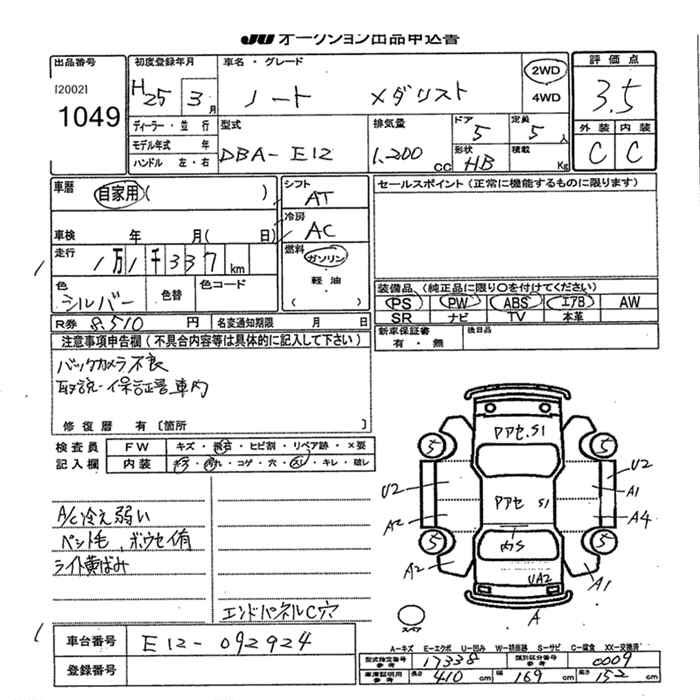 JU オークション出品申込書
出品番号
[2002]
1049
初度登録年月
H25 3月
ディーラー・並行
モデル年式 年
ハンドル 左・右
車名・グレード
ノート メダリスト
2WD
4WD
評価点
3.5
外装 内装
C C
型式
DBA-E12
排気量
1,200 cc
ドア 5
定員 5人
形状 HB
積載 Kg
車歴 自家用( )
車検 年 月( 日)
走行 1万1千337km
色 シルバー
色替
色コード
R券 8,510円
名変通知期限 月 日
シフト AT
冷房 AC
燃料 ガソリン
軽油
セールスポイント(正常に機能するものに限ります)
装備品、(純正品に限り○を付けてください)
PS PW ABS エアB AW
SR ナビ TV 本革
新車保証書 有・無
後日品
注意事項申告欄(不具合内容等は具体的に記入して下さい)
バックカメラ不良
取説・保証書車内
修復歴 有〔箇所 〕
検査員記入欄
FW キズ・飛石・ヒビ割・リペア跡・×要
内装 キズ・汚れ・コゲ・穴・スレ・キレ・破レ
A/C冷え弱い
ペット毛、ボウセイ有
ライト黄ばみ
エンドパネルC穴
アアセ.S1
アアセ S1
内S
UA2
5 5
5 5
U2 U2
A1
A2 A4
A2 A1
A
スペア
車台番号 E12-092924
登録番号
A-キズ E-エクボ U-凹み W-補修跡 S-サビ C-腐食 XX-交換済
型式指定番号 参考 17338
類別区分番号 参考 0009
車庫証明用 参考 長さ 410cm 幅 169cm 高さ 152cm